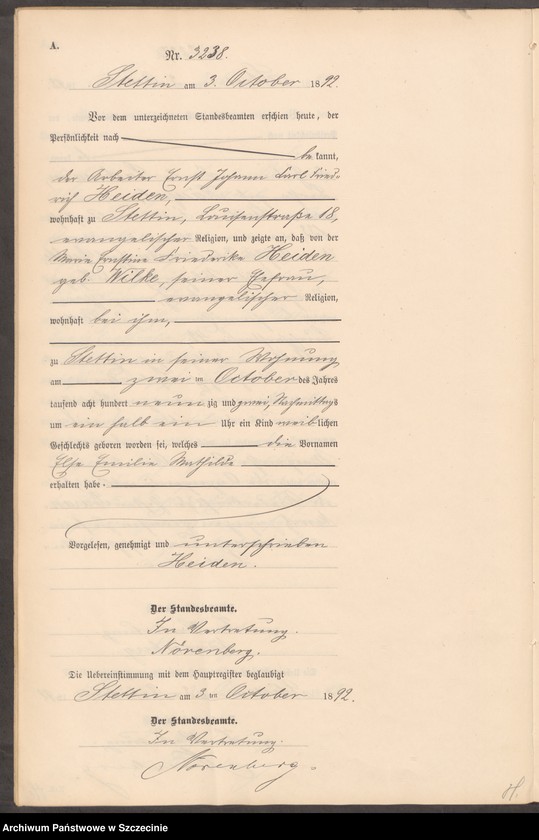 A.
Nr. 3238.
Stettin am 3. October 1892.
Vor dem unterzeichneten Standesbeamten erschien heute, der
Persönlichkeit nach
be kannt,
der Arbeiter Ernst Johann Carl Fried-
rich Heiden,
wohnhaft zu Stettin, Louisenstraße 18,
evangelischer Religion, und zeigte an, daß von der
Marie Ernstine Friederike Heiden
geb. Wilke, seiner Ehefrau,
evangelischer Religion,
wohnhaft bei ihm,
zu Stettin in seiner Wohnung
am zwei ten October des Jahres
tausend acht hundert neun zig und zwei, Nachmittags
um ein halb ein Uhr ein Kind weib lichen
Geschlechts geboren worden sei, welches die Vornamen
Else Emilie Mathilde
erhalten habe.
Vorgelesen, genehmigt und unterschrieben
Heiden.
Der Standesbeamte.
In Vertretung.
Nörenberg.
Die Uebereinstimmung mit dem Hauptregister beglaubigt
Stettin am 3 ten October 1892.
Der Standesbeamte.
In Vertretung.
Nörenberg.
Archiwum Państwowe w Szczecinie